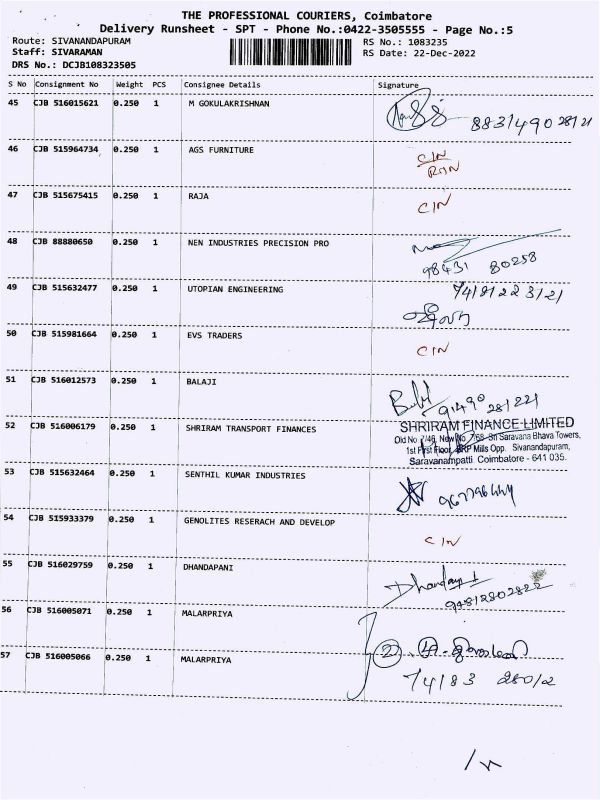 THE PROFESSIONAL COURIERS, Coimbatore
Delivery Runsheet - SPT - Phone No.:0422-3505555 - Page No.:5
Route: SIVANANDAPURAM RS No.: 1083235
Staff: SIVARAMAN RS Date: 22-Dec-2022
DRS No.: DCJB108323505
S No Consignment No Weight PCS Consignee Details Signature
45 CJB 516015621 0.250 1 M GOKULAKRISHNAN
46 CJB 515964734 0.250 1 AGS FURNITURE C/N
47 CJB 515675415 0.250 1 RAJA C/N
48 CJB 88880650 0.250 1 NEN INDUSTRIES PRECISION PRO
98431 80258
49 CJB 515632477 0.250 1 UTOPIAN ENGINEERING
50 CJB 515981664 0.250 1 EVS TRADERS C/N
51 CJB 516012573 0.250 1 BALAJI
52 CJB 516006179 0.250 1 SHRIRAM TRANSPORT FINANCES
SHRIRAM FINANCE LIMITED
Old No 7/46, New No. 7/68, Sri Saravana Bhava Towers,
1st First Floor, ERP Mills Opp. Sivanandapuram,
Saravanampatti Coimbatore - 641 035.
53 CJB 515632464 0.250 1 SENTHIL KUMAR INDUSTRIES
54 CJB 515933379 0.250 1 GENOLITES RESERACH AND DEVELOP C/N
55 CJB 516029759 0.250 1 DHANDAPANI
56 CJB 516005071 0.250 1 MALARPRIYA
57 CJB 516005066 0.250 1 MALARPRIYA